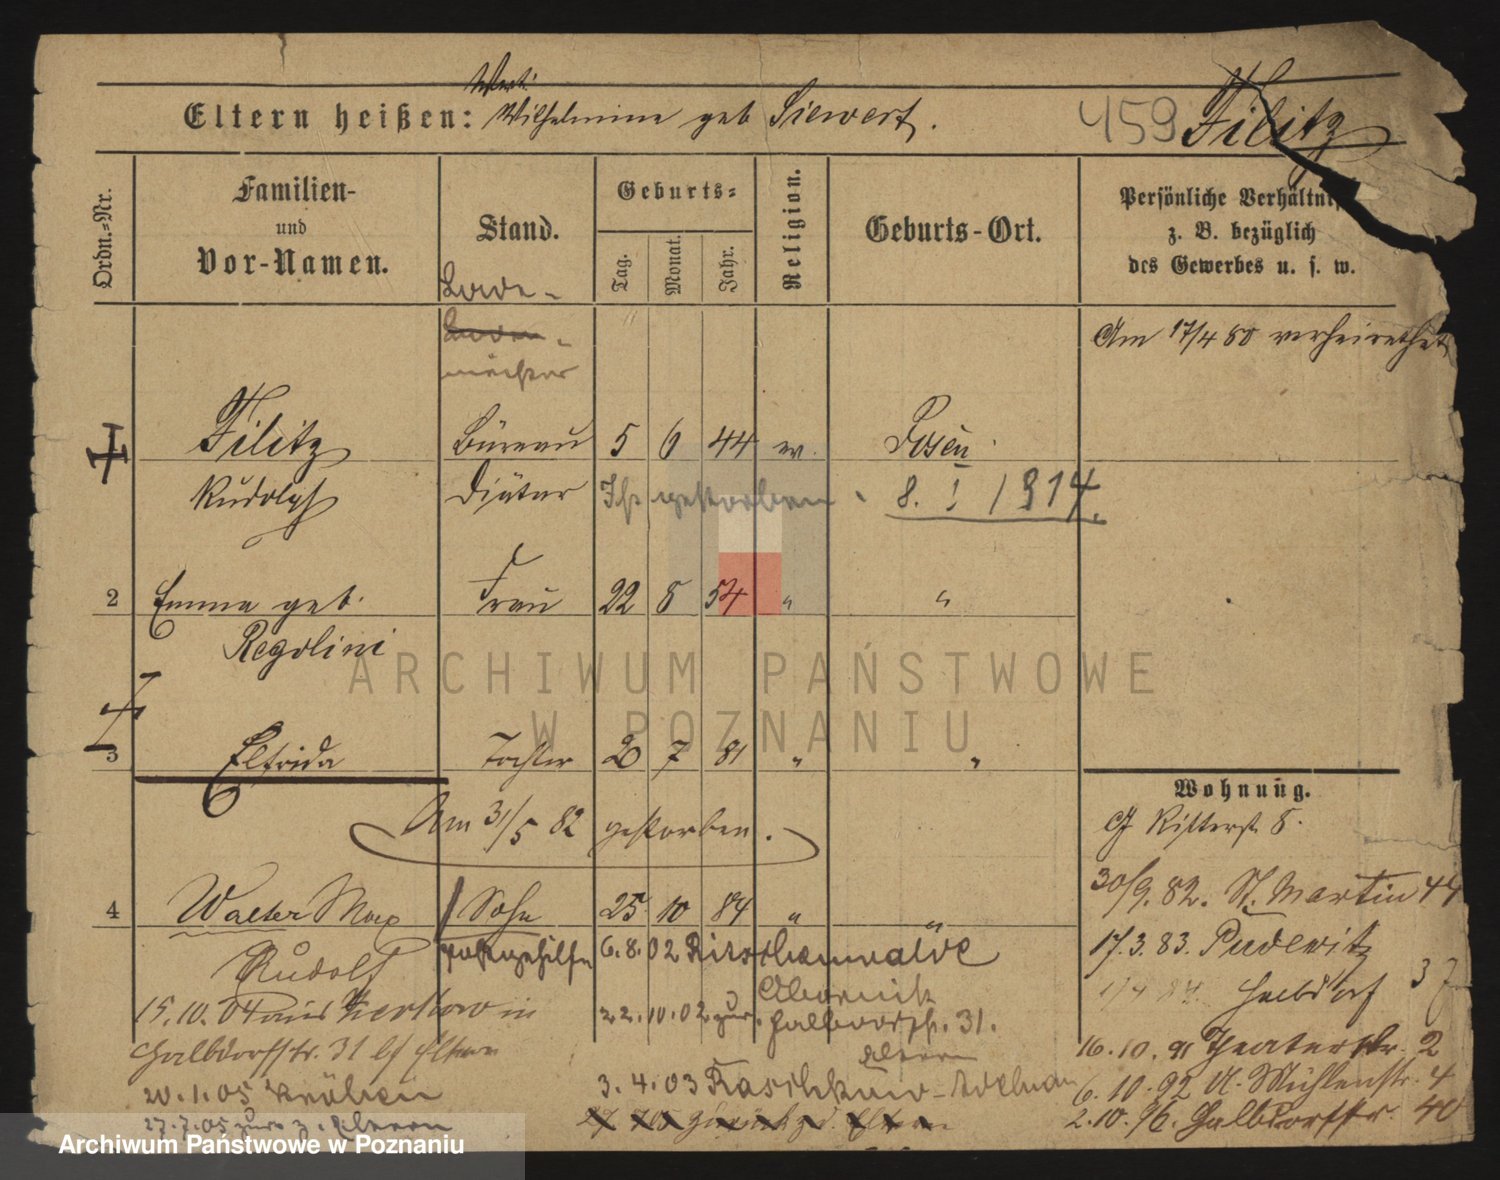 Eltern heißen: Wilhelmine geb Siewert.
459 Filitz
Ordn.-Nr.
Familien-
und
Vor-Namen.
Stand.
Geburts-
Tag.
Monat.
Jahr.
Religion.
Geburts-Ort.
Persönliche Verhältnis
z. B. bezüglich
des Gewerbes u. s. w.
Am 17/4 80 verheirathet
Filitz Büreau 5 6 44 ev. Posen
Rudolph Diätar Ist gestorben 8. I 1914.
2 Emma geb. Frau 22 8 54 " "
Regolini
3 Elfrida Tochter 20 7 81 " "
Am 31/5 82 gestorben.
4 Walter Max Sohn 25 10 84 " "
Rudolf Postgehilfe 6.8.02 Ritschenwalde
Obornik
15.10.04 aus in 22.10.02 zur. Halbdorfstr. 31.
Halbdorfstr. 31 bf Eltern Eltern
20.1.05 Kröben 3.4.03 Raschkow-Adelnau
27.7.05 zur. z. Eltern
Wohnung.
Ritterst 8.
30/9. 82. St. Martin 44
17.3.83. Pudewitz
1/4 84. Halbdorf 37
16.10.91 Theaterstr. 2
6.10.92 U. Mühlenstr. 4
2.10.96. Halbdorfstr. 40
ARCHIWUM PAŃSTWOWE
W POZNANIU
Archiwum Państwowe w Poznaniu